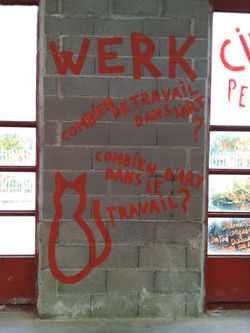 WERK
COMBIEN DE TRAVAIL
DANS L'ART
?
COMBIEN D'ART
DANS LE
TRAVAIL?
Ci
PE